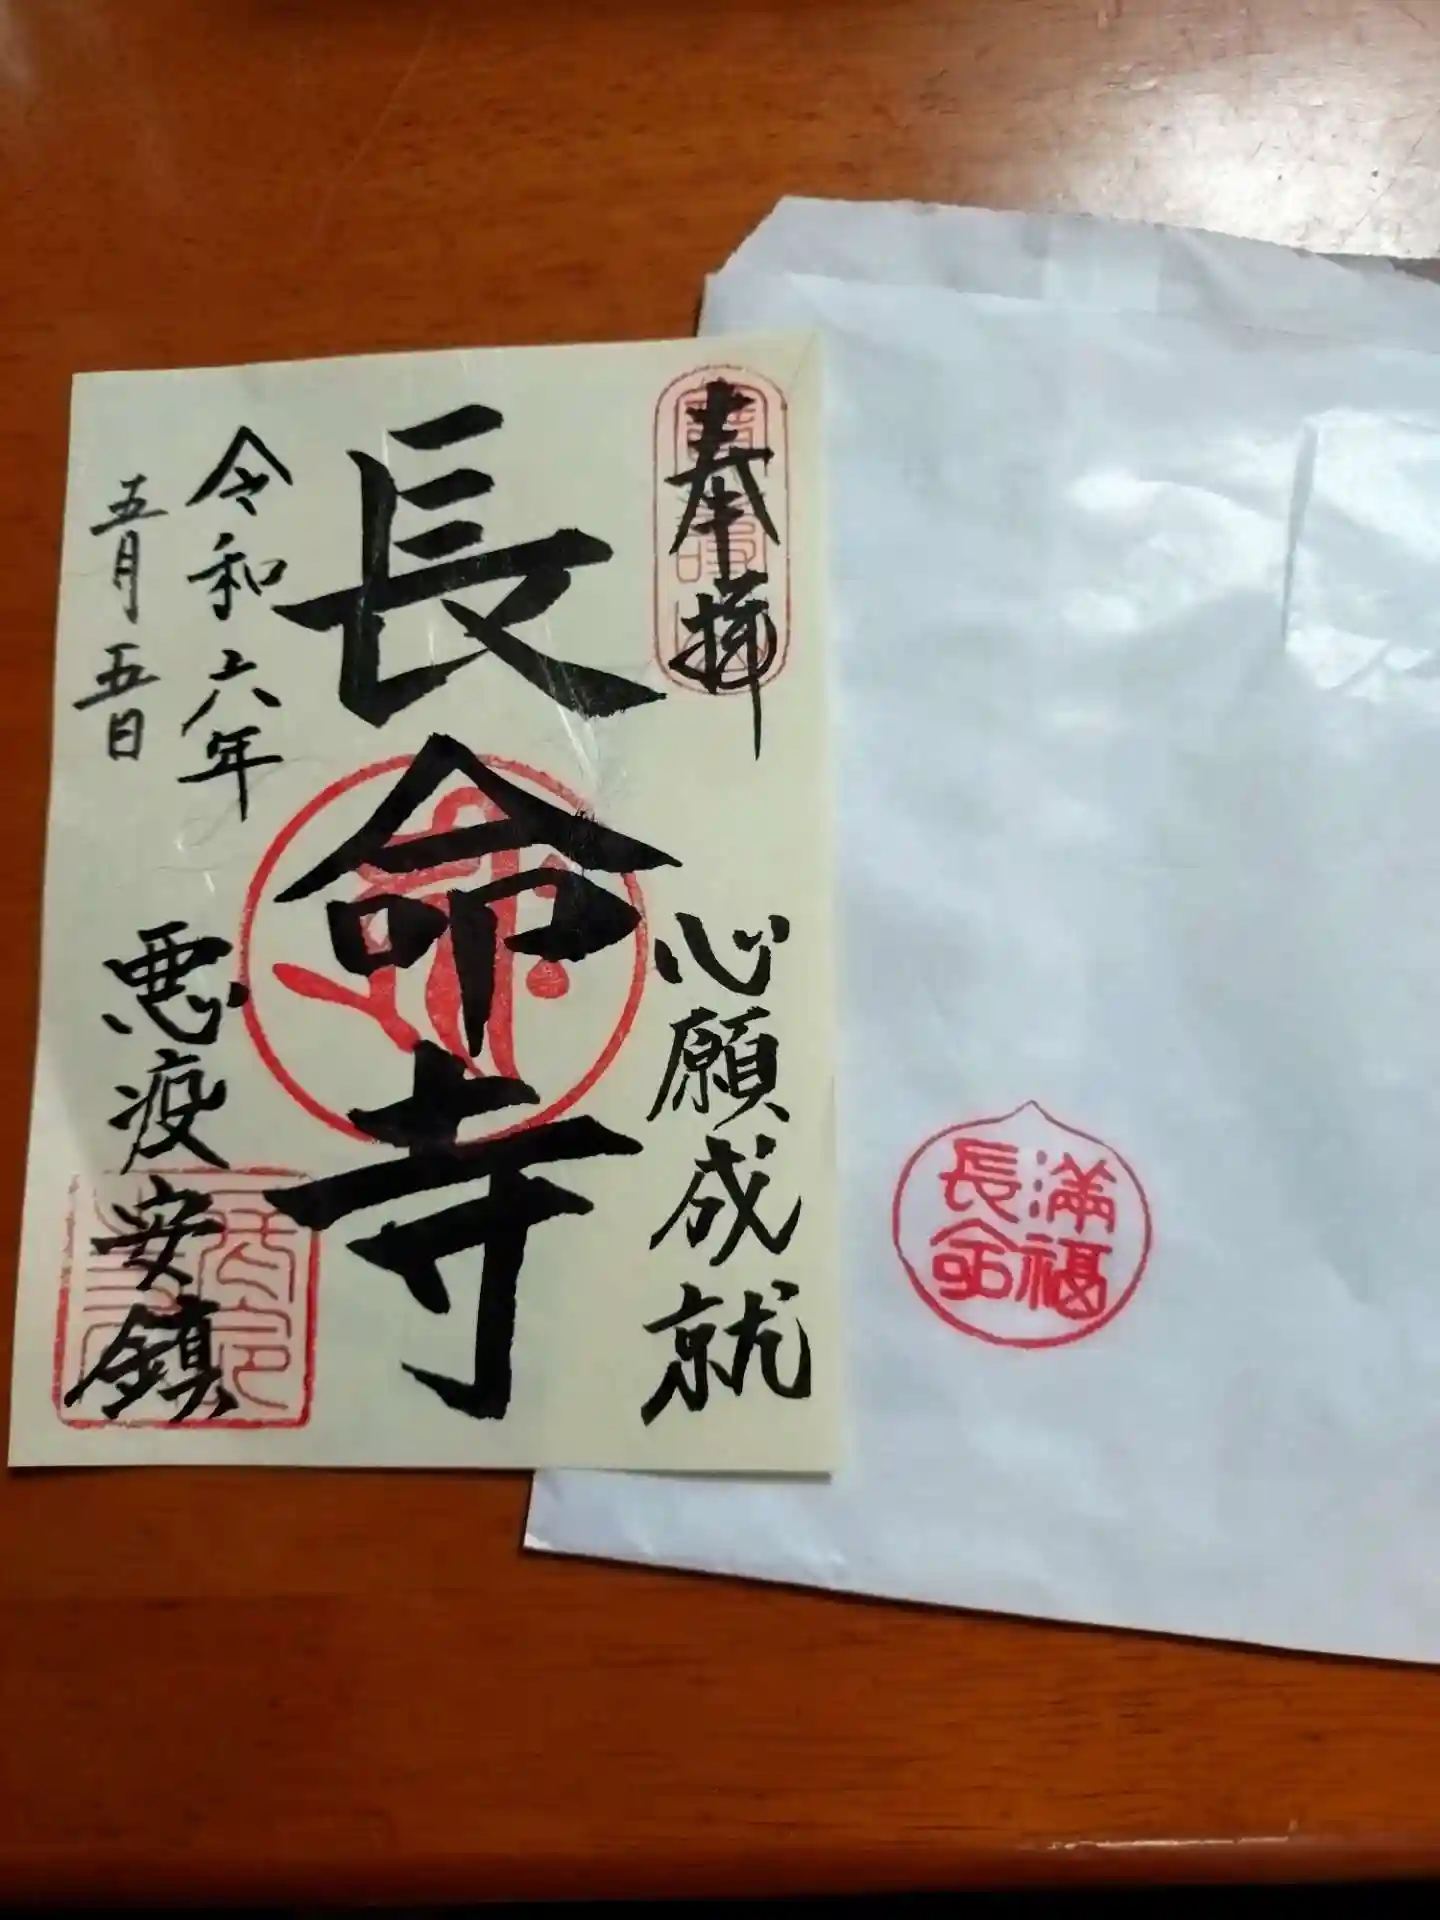 奉拝
心願成就
長命寺
令和六年
五月五日
悪疫安鎮
満福
長命